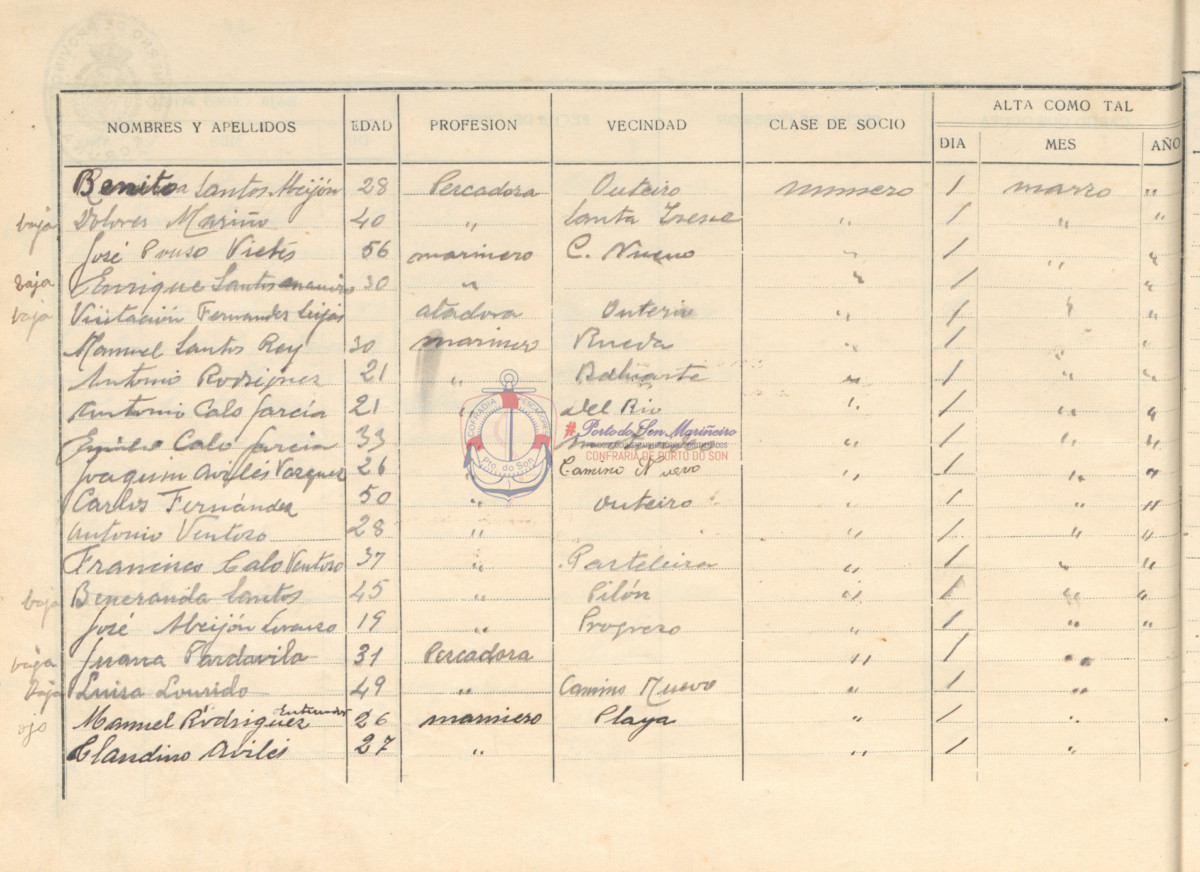 NOMBRES Y APELLIDOS EDAD PROFESION VECINDAD CLASE DE SOCIO ALTA COMO TAL
DIA MES AÑO
Benita Santos Abeijón 28 Pescadora Outeiro numero 1 marzo "
baja Dolores Mariño 40 " Santa 1 " "
José Pouso Vietes 56 marinero C. Nuevo " 1 " "
baja Enrique Santos 30 " " 1 "
baja Visitación Fernandez atadora Outeiro " 1 " "
Manuel Santos Rey 30 marinero Rueda " 1 " "
Antonio Rodriguez 21 " Baluarte " 1 " "
Antonio Calo García 21 " del Rio " 1 " "
Emilio Calo García 33 " 1 " "
Joaquin Aviles Vazquez 26 " Camino Nuevo " 1 " "
Carlos Fernández 50 " Outeiro " 1 " "
Antonio Ventoso 28 " " 1 " "
Francisco Calo Ventoso 37 " Parteleira " 1 " "
baja Beneranda Santos 45 " Pilón " 1 " "
José Abeijón Lorenzo 19 " Progreso " 1 " "
baja Juana Pardavila 31 Pescadora " 1 "
baja Luisa Lourido 49 " Camino Nuevo " 1 "
ojo Manuel Rodriguez 26 marinero Playa " 1 "
Claudino Aviles 27 " " 1 "
COFRADIA PESCADORES
Pto. do Son
# Porto do Son Mariñeiro
CONFRARÍA DE PORTO DO SON